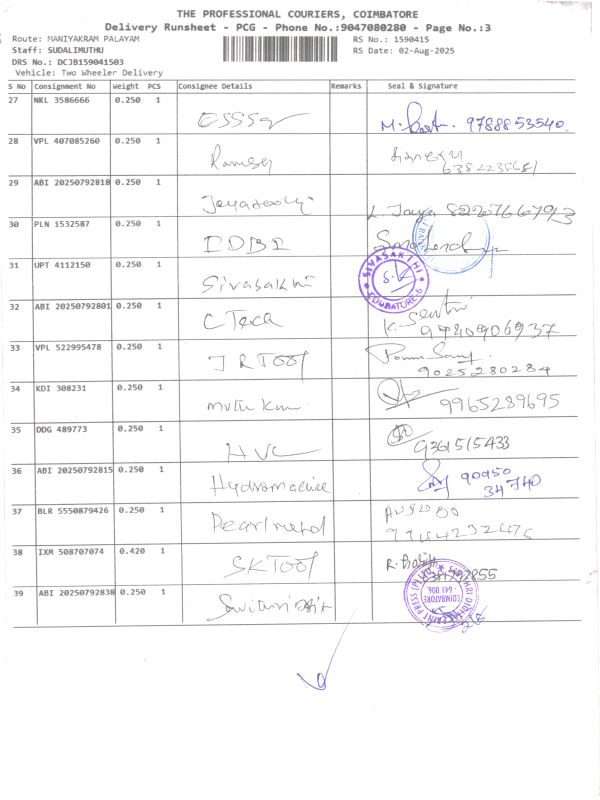 THE PROFESSIONAL COURIERS, COIMBATORE
Delivery Runsheet - PCG - Phone No.:9047080280 - Page No.:3
Route: MANIYAKRAM PALAYAM RS No.: 1590415
Staff: SUDALIMUTHU RS Date: 02-Aug-2025
DRS No.: DCJB159041503
Vehicle: Two Wheeler Delivery
S No Consignment No Weight PCS Consignee Details Remarks Seal & Signature
27 NKL 3586666 0.250 1 9788853540.
28 VPL 407085260 0.250 1 Ramesh
29 ABI 20250792818 0.250 1 L Jaya
30 PLN 1532587 0.250 1 IDBI
31 UPT 4112150 0.250 1 Sivasakthi SIVASAKTHI S.K COIMBATORE-6
32 ABI 20250792801 0.250 1 C Tech K.
33 VPL 522995478 0.250 1 J R Tool 9025280284
34 KDI 308231 0.250 1 9965289695
35 DDG 489773 0.250 1 HVC 9361515433
36 ABI 20250792815 0.250 1 90950
34740
37 BLR 5550879426 0.250 1
38 IXM 508707074 0.420 1 SK Tool R.
39 ABI 20250792838 0.250 1 COIMBATORE - 641 006